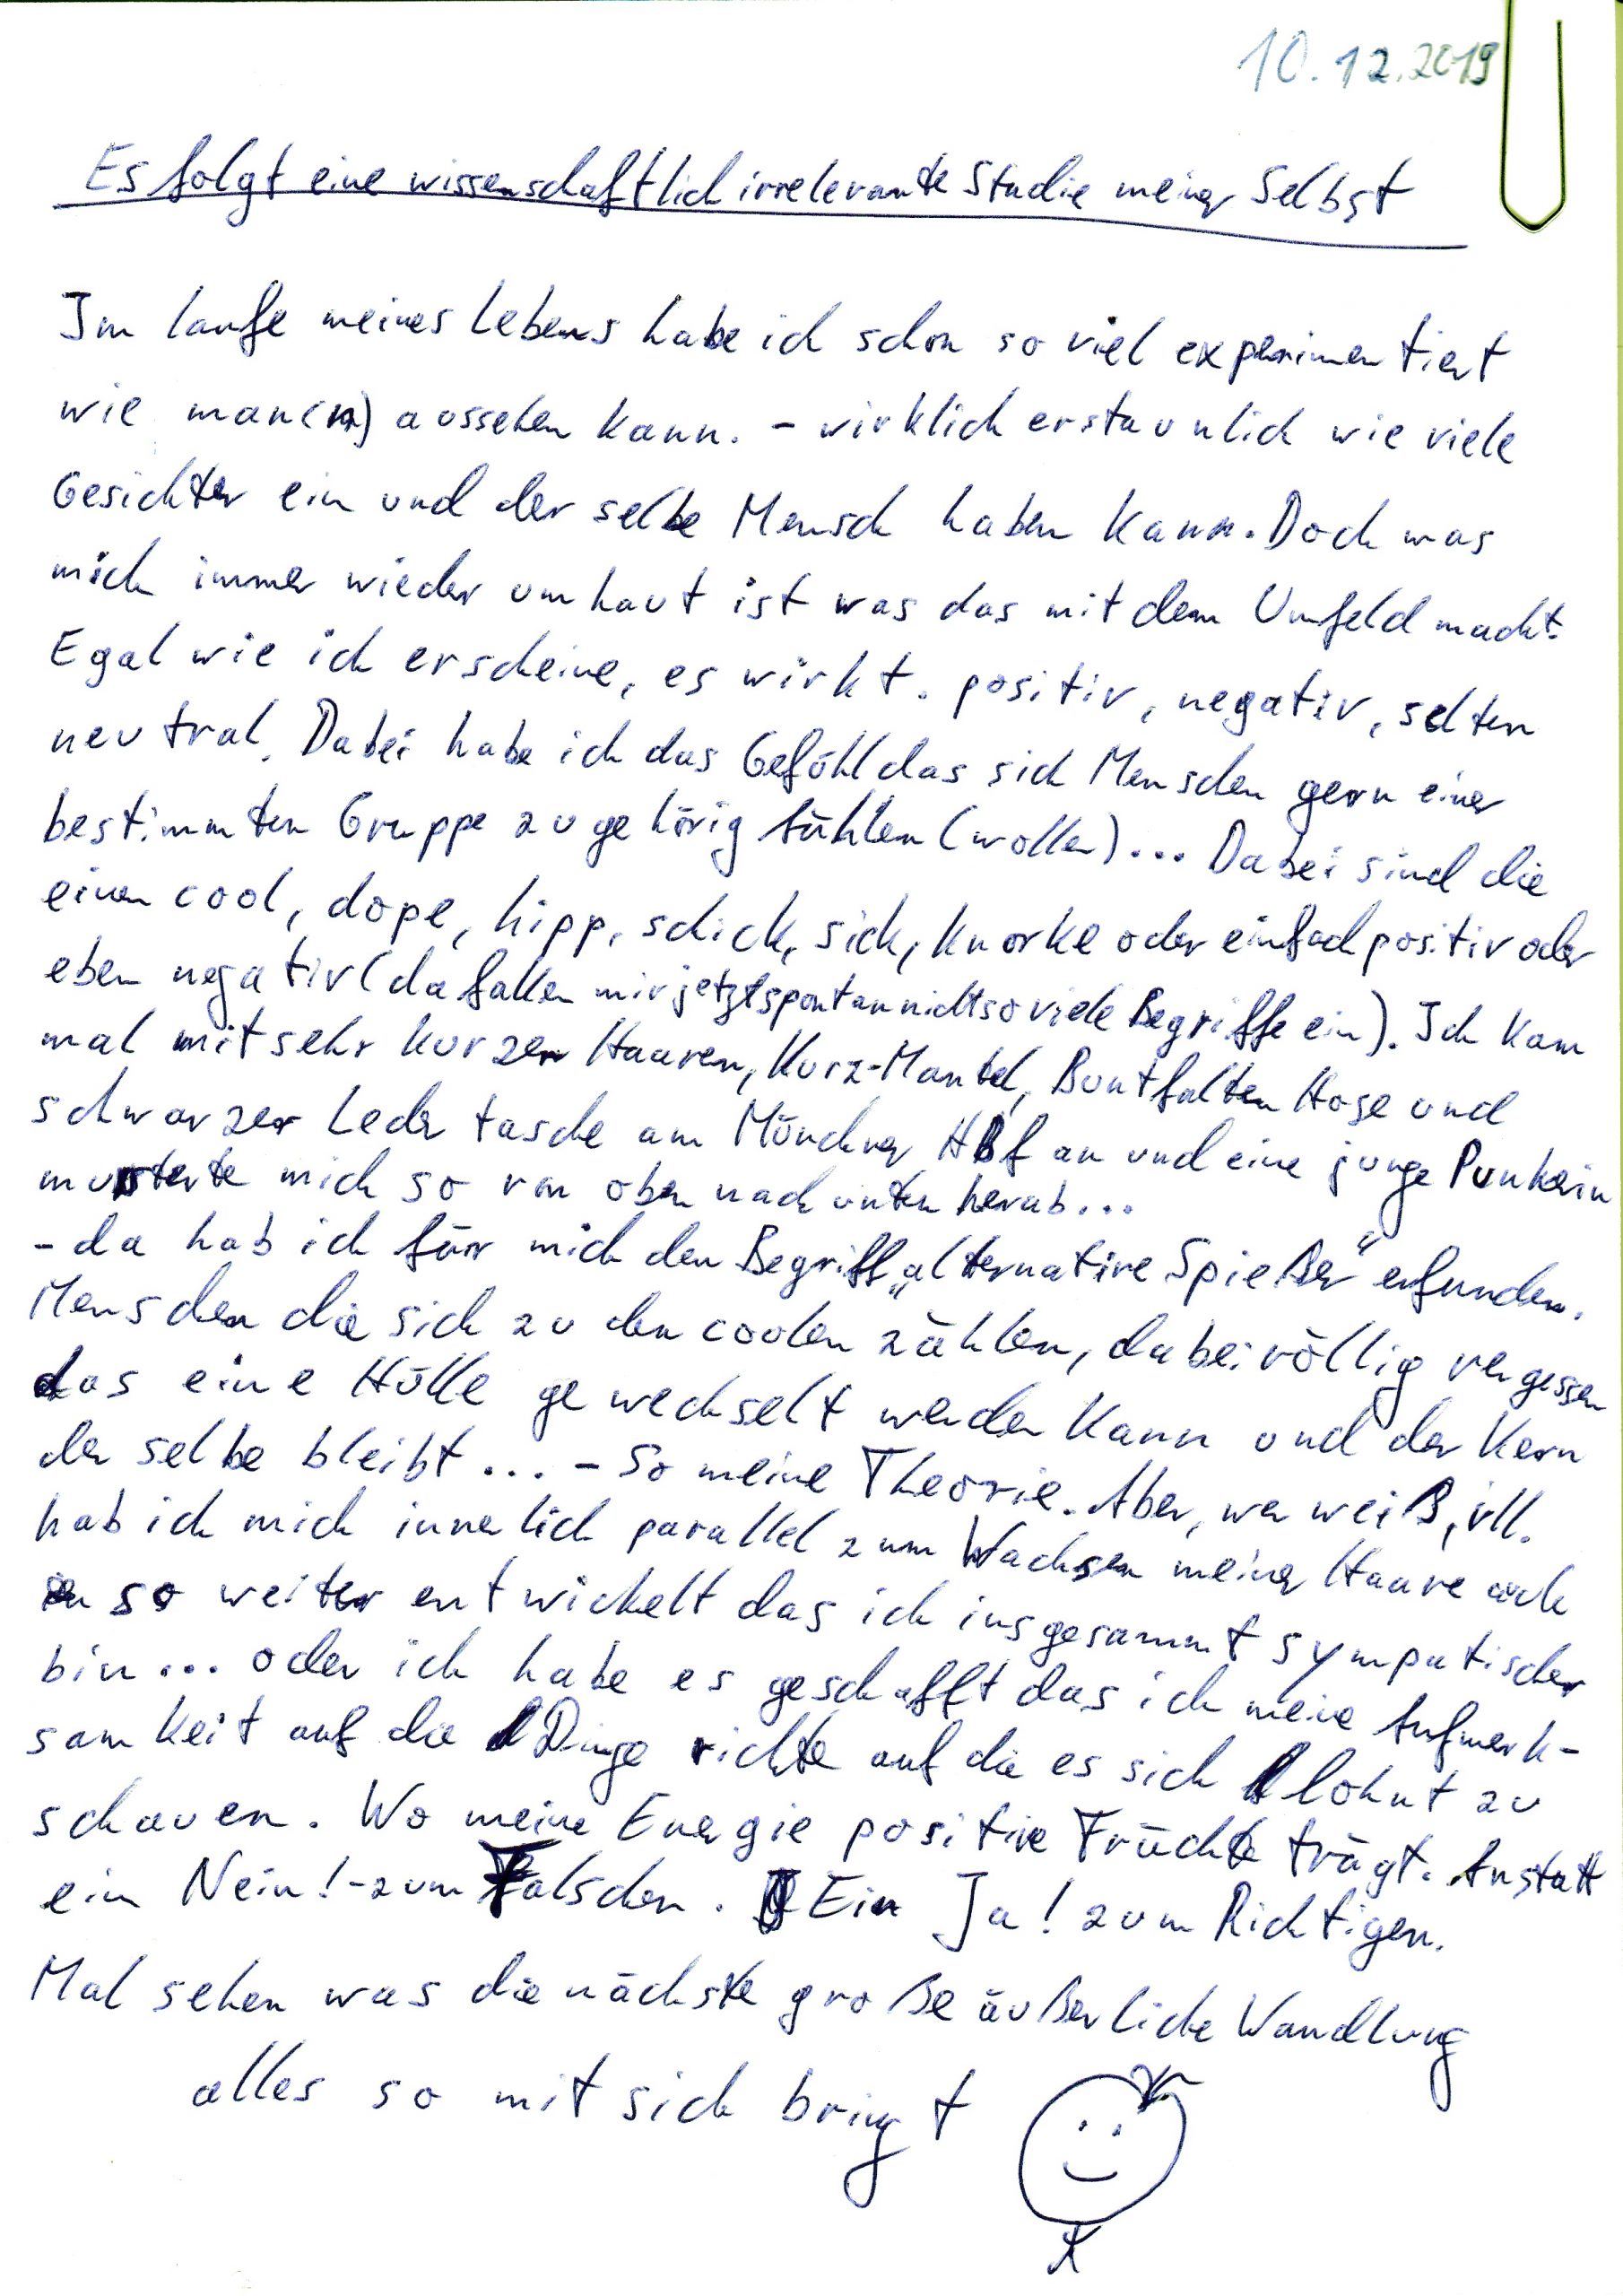 10.12.2019
Es folgt eine wissenschaftlich irrelevante Studie meiner Selbst
Im laufe meines Lebens habe ich schon so viel experimentiert
wie man(n) aussehen kann. - wirklich erstaunlich wie viele
Gesichter ein und der selbe Mensch haben kann. Doch was
mich immer wieder umhaut ist was das mit dem Umfeld macht.
Egal wie ich erscheine, es wirkt. positiv, negativ, selten
neutral. Dabei habe ich das Gefühl das sich Menschen gern einer
bestimmten Gruppe zugehörig fühlen (wollen)... Dabei sind die
einen cool, dope, hipp, schick, sick, knorke oder einfach positiv oder
eben negativ (da fallen mir jetzt spontan nicht so viele Begriffe ein). Ich kam
mal mit sehr kurzen Haaren, Kurz-Mantel, Buntfalten Hose und
schwarzer Leder tasche am Münchner HBf an und eine junge Punkerin
musterte mich so von oben nach unten herab...
- da hab ich für mich den Begriff „alternative Spießer" erfunden.
Menschen die sich zu den coolen zählen, dabei völlig vergessen
das eine Hülle gewechselt werden kann und der Kern
der selbe bleibt... - so meine Theorie. Aber, wer weiß, vll.
hab ich mich innerlich parallel zum Wachsen meiner Haare auch
so weiter entwickelt das ich insgesammt sympatischer
bin... oder ich habe es geschafft das ich meine Aufmerk-
samkeit auf die Dinge richte auf die es sich lohnt zu
schauen. Wo meine Energie positive Früchte trägt. Anstatt
ein Nein! - zum Falschen. Ein Ja! zum Richtigen.
Mal sehen was die nächste große äußerliche Wandlung
alles so mit sich bringt